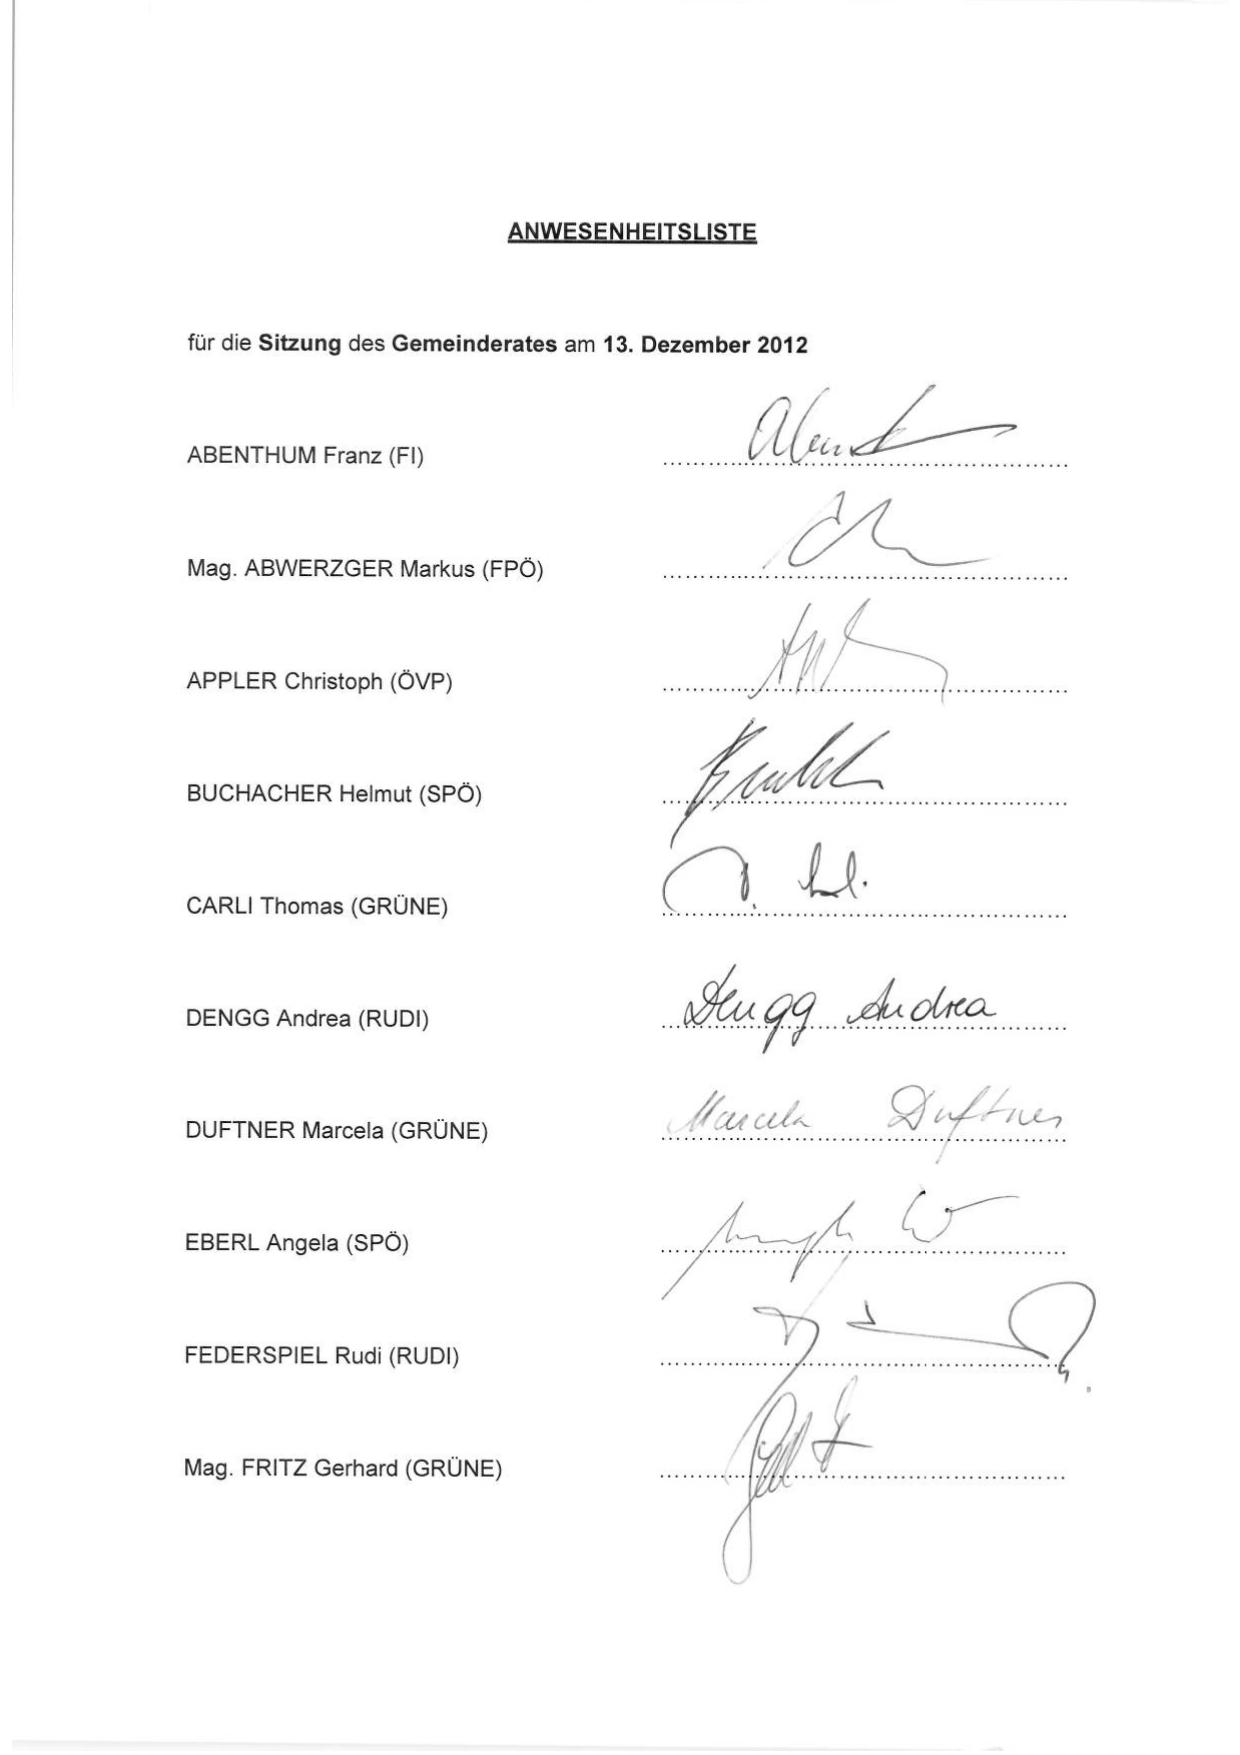 ANWESENHEITSLISTE
für die Sitzung des Gemeinderates am 13. Dezember 2012
ABENTHUM Franz (FI)
Mag. ABWERZGER Markus (FPÖ)
APPLER Christoph (ÖVP)
BUCHACHER Helmut (SPÖ)
CARLI Thomas (GRÜNE)
DENGG Andrea (RUDI) Dengg Andrea
DUFTNER Marcela (GRÜNE) Marcela Duftner
EBERL Angela (SPÖ)
FEDERSPIEL Rudi (RUDI)
Mag. FRITZ Gerhard (GRÜNE)